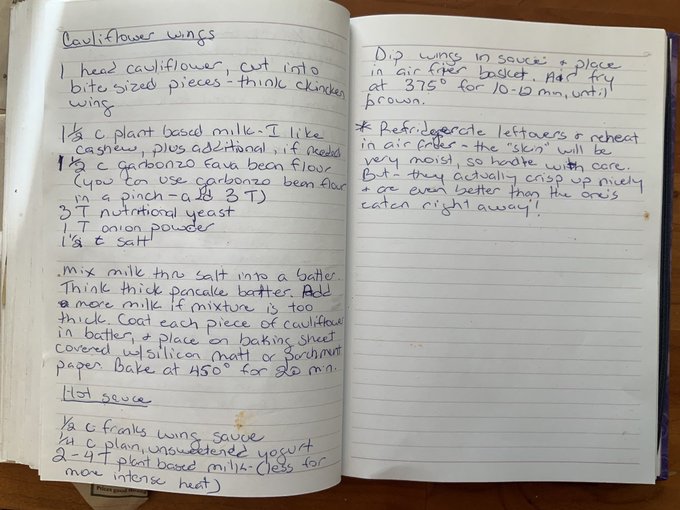 Cauliflower wings
1 head cauliflower, cut into
bite sized pieces - think chicken
wing
1 ½ c plant based milk - I like
cashew, plus additional, if needed
1 ½ c garbonzo fava bean flour
(you can use garbonzo bean flour
in a pinch - add 3 T)
3 T nutritional yeast
1 T onion powder
1 ½ t salt
Mix milk thru salt into a batter.
Think thick pancake batter. Add
more milk if mixture is too
thick. Coat each piece of cauliflower
in batter, & place on baking sheet
covered w/silicon matt or parchment
paper. Bake at 450° for 20 min.
Hot sauce
½ c franks wing sauce
¼ c plain, unsweetened yogurt
2 - 4 T plant based milk - (less for
more intense heat)
Dip wings in sauce & place
in air fryer basket. Air fry
at 375° for 10-12 min, until
brown.
* Refridgerate leftovers & reheat
in air fryer - the "skin" will be
very moist, so handle with care.
But - they actually crisp up nicely
& are even better than the one's
eaten right away!